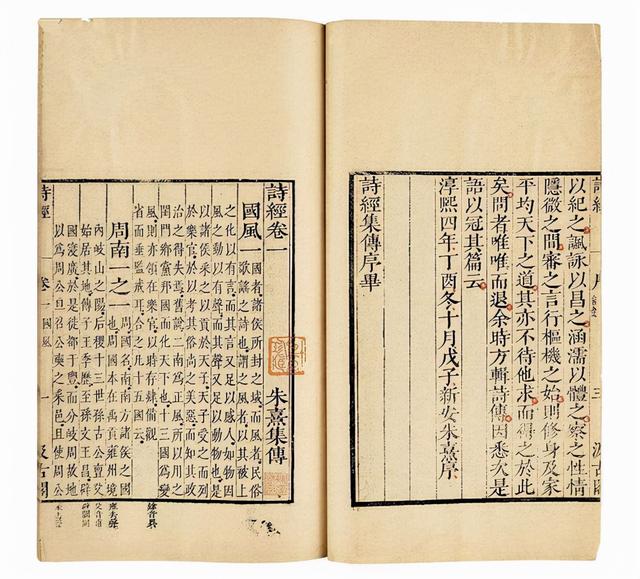 詩經 三 汲古閣
以紀之諷詠以昌之涵濡以體之察之性情
隱微之間審之言行樞機之始則修身及家
平均天下之道其亦不待他求而得之於此
矣問者唯唯而退余時方輯詩傳因悉次是
語以冠其篇云
淳熙四年丁酉冬十月戊子新安朱熹序
詩經集傳序畢
詩經卷一 朱熹集傳
國風一 國者諸侯所封之域而風者民俗
歌謠之詩也謂之風者以其被上
之化以有言而其言又足以感人如物因
風之動以有聲而其聲又足以動物也是
以諸侯采之以貢於天子天子受之而列
於樂官於以考其俗尚之美惡而知其政
治之得失焉舊說二南為正風所以用之
閨門鄉黨邦國而化天下也十三國為變
風則亦領在樂官以時存肄備觀
省而垂監戒耳合之凡十五國云
周南一之一 周國名南南方諸侯之國
也周國本在禹貢雍州境
內岐山之陽后稷十三世孫古公亶父
始居其地傳子王季歷至孫文王昌辟
國寖廣於是徙都于豐而分岐周故地
以為周公旦召公奭之采邑且使周公
詩經 卷一國風 一 汲古閣